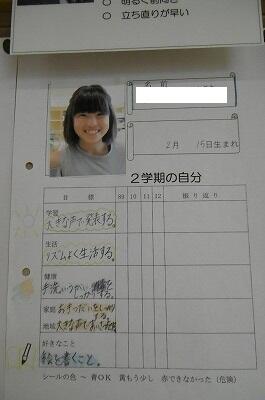 ○ 明るく前向き
○ 立ち直りが早い
名前
2月 15日生まれ
2学期の自分
目標 89 10 11 12 振り返り
学習
大きな声で発表する。
生活
リズムよく生活する。
健康
手洗いうがいしっかりする。
家庭 お手つだいをしっかりする。
地域 大きな声であいさつ
好きなこと
絵を書くこと。
シールの色 ～ 青OK 黄もう少し 赤できなかった(危険)